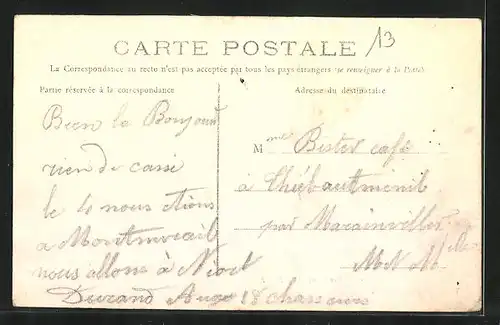 CARTE POSTALE
13
La Correspondance au recto n'est pas acceptée par tous les pays étrangers (se renseigner à la Poste)
Partie réservée à la correspondance
Adresse du destinataire
Bien le Bonjour
rien de cassé
le 4 nous étions
a Montmirail
nous allons à Niort
Durand Auge 18 chasseurs
Mme Bister café
à Thiébauménil
par Marainviller
M et M lle